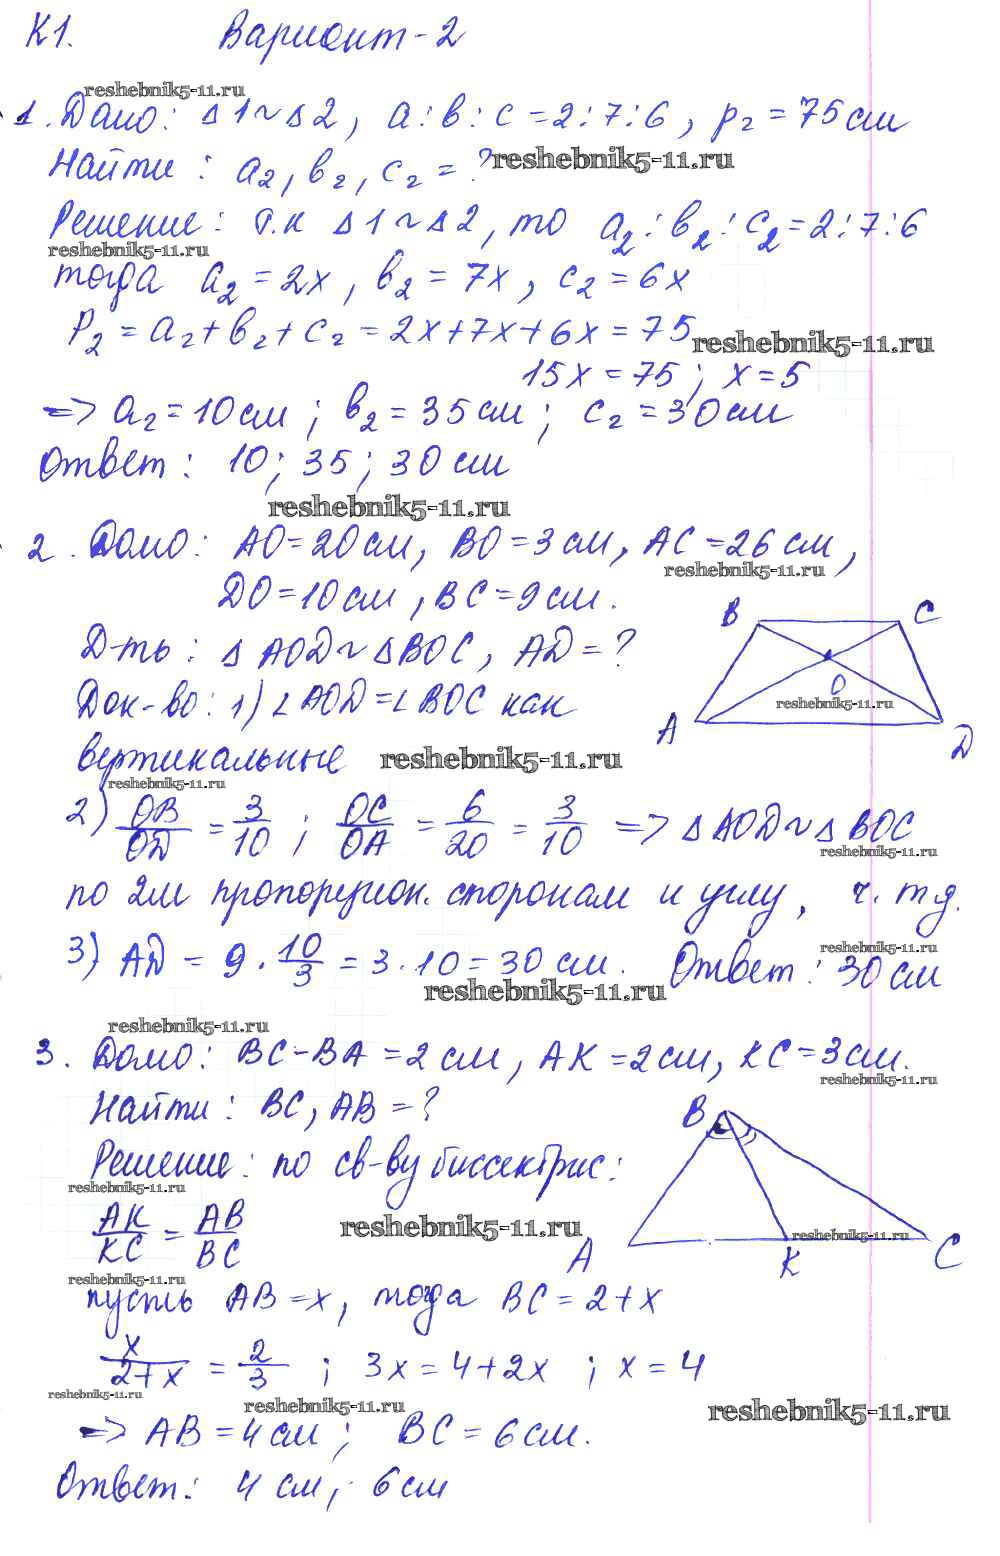 К1. Вариант-2
reshebnik5-11.ru
1. Дано: Δ1~Δ2, a:в:c=2:7:6, p₂=75см
Найти: a₂, в₂, c₂ = ? reshebnik5-11.ru
Решение: т.к Δ1~Δ2, то a₂:в₂:c₂=2:7:6
reshebnik5-11.ru
тогда a₂=2x, в₂=7x, c₂=6x
P₂=a₂+в₂+c₂=2x+7x+6x=75
reshebnik5-11.ru
15x=75; x=5
=> a₂=10см; в₂=35см; c₂=30см
Ответ: 10; 35; 30см
reshebnik5-11.ru
2. Дано: AO=20см, BO=3см, AC=26см,
reshebnik5-11.ru
DO=10см, BC=9см.
B C
Д-ть: Δ AOD~ΔBOC, AD=?
Док-во: 1)∠AOD=∠BOC как
O
reshebnik5-11.ru
A D
вертикальные reshebnik5-11.ru
reshebnik5-11.ru
2) OB/OD = 3/10; OC/OA = 6/20 = 3/10 => Δ AOD~Δ BOC
reshebnik5-11.ru
по 2м пропорцион. сторонам и углу, ч.т.д.
reshebnik5-11.ru
3) AD = 9·10/3=3·10=30см. Ответ: 30см
reshebnik5-11.ru
reshebnik5-11.ru
3. Дано: BC-BA=2см, AK=2см, KC=3см.
reshebnik5-11.ru
Найти: BC, AB=?
B
Решение: по св-ву биссектрис:
reshebnik5-11.ru
AK/KC = AB/BC
reshebnik5-11.ru
reshebnik5-11.ru
A K C
reshebnik5-11.ru
пусть AB=x, тогда BC=2+x
x/2+x = 2/3; 3x=4+2x; x=4
reshebnik5-11.ru
reshebnik5-11.ru
reshebnik5-11.ru
=> AB=4см; BC=6см.
Ответ: 4см; 6см